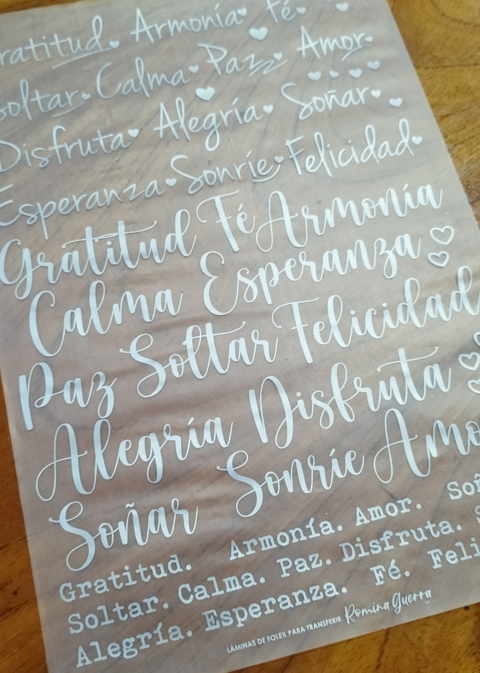 Gratitud Armonía Fé
Soltar Calma Paz Amor
Disfruta Alegría Soñar
Esperanza Sonríe Felicidad
Gratitud Fé Armonía
Calma Esperanza
Paz Soltar Felicidad
Alegría Disfruta
Soñar Sonríe Amo
Gratitud. Armonía. Amor. Soñ
Soltar. Calma. Paz. Disfruta. S
Alegría. Esperanza. Fé. Feli
LÁMINAS DE FOLEX PARA TRANSFERIR Romina Guerra